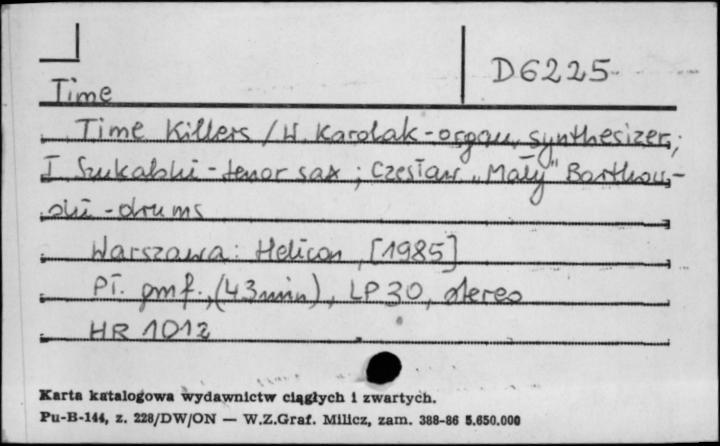 D6225
Time
Time Killers / W. Karolak - organ, synthesizer;
T. Szukalski - tenor sax ; Czesław „Mały" Bartkow-
ski - drums
Warszawa : Helicon, [1985]
Pł. gmf., (43 min), LP 30, stereo
HR 1012
Karta katalogowa wydawnictw ciągłych i zwartych.
Pu-B-144, z. 228/DW/ON — W.Z.Graf. Milicz, zam. 388-86 5.650.000